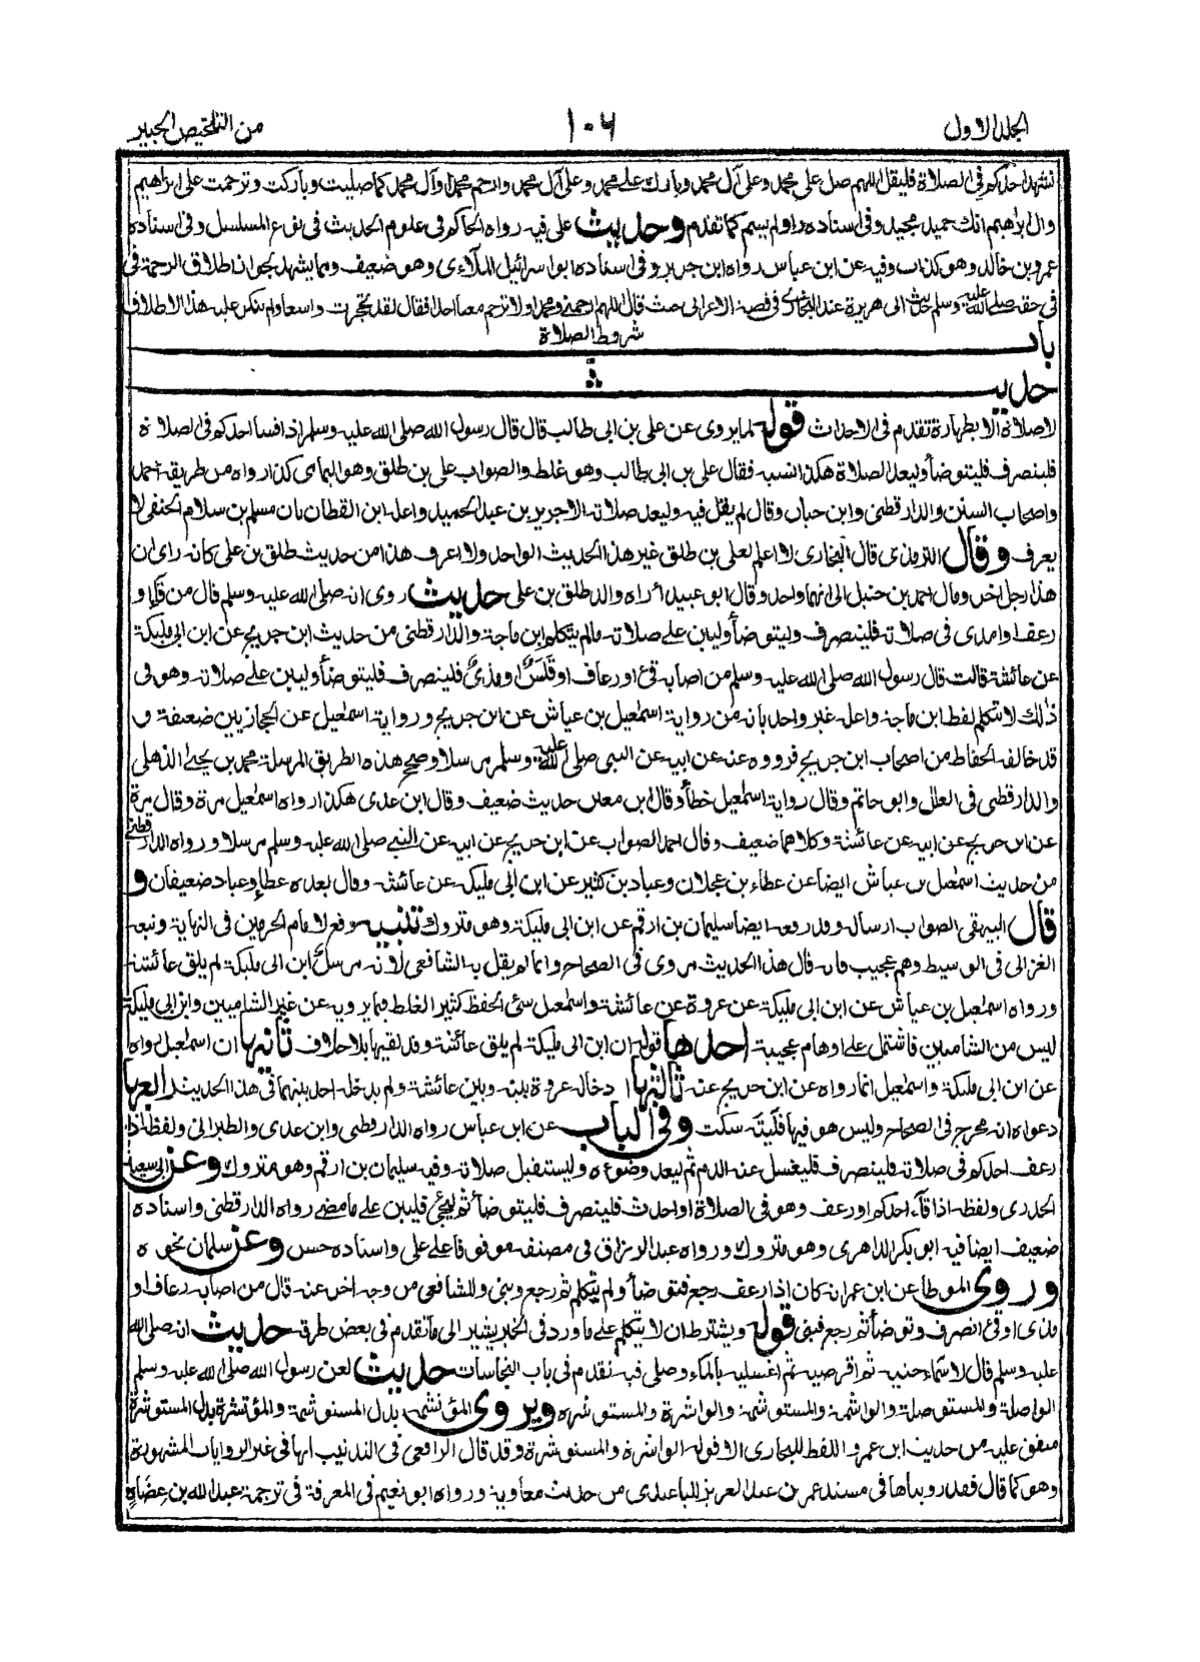 الجلد الاول
١٠٦
من التلخيص الحبير
تشهد احدكم فى الصلاة فليقل اللهم صل على محمد وعلى آل محمد وبارك على محمد وعلى آل محمد وارحم محمدا وآل محمد كما صليت وباركت وترحمت على ابراهيم
وال ابراهيم انك حميد مجيد وفى اسناده راو لم يسم كما تقدم وحديث على فيه رواه الحاكم فى علوم الحديث فى نوع المسلسل وفى اسناده
عمرو بن خالد وهو كذاب وفيه عن ابن عباس رواه ابن جرير وفى اسناده ابو اسرائيل الملاءى وهو ضعيف ومما يشهد لجواز اطلاق الرحمة فى
فى حقه صلى الله عليه وسلم حديث ابى هريرة عند البخارى فى قصة الاعرابى حيث قال اللهم ارحمنى ومحمدا ولا ترحم معنا احدا فقال لقد تحجرت واسعا ولم ينكر عليه هذا الاطلاق
باب شروط الصلاة
حديث
لا صلاة الا بطهارة تقدم فى الاحداث قوله لما يروى عن على بن ابى طالب قال قال رسول الله صلى الله عليه وسلم اذا فسا احدكم فى الصلاة
فلينصرف فليتوضأ وليعد الصلاة هكذا نسبه فقال على بن ابى طالب وهو غلط والصواب على بن طلق وهو اليمامى كذا رواه من طريقه احمد
واصحاب السنن والدارقطنى وابن حبان وقال لم يقل فيه وليعد صلاته الا جرير بن عبد الحميد واعله ابن القطان بان مسلم بن سلام الحنفى لا
يعرف وقال الترمذى قال البخارى لا اعلم لعلى بن طلق غير هذا الحديث الواحد ولا اعرف هذا من حديث طلق بن على كانه راى ان
هذا رجل اخر ومال احمد بن حنبل الى انهما واحد وقال ابو عبيد أراه والد طلق بن على حديث روى انه صلى الله عليه وسلم قال من قاء او
رعف او امذى فى صلاته فلينصرف وليتوضأ وليبن على صلاته مالم يتكلم ابن ماجة والدارقطنى من حديث ابن جريج عن ابن ابى مليكة
عن عائشة قالت قال رسول الله صلى الله عليه وسلم من اصابه قئ او رعاف او قلس او مذى فلينصرف فليتوضأ وليبن على صلاته وهو فى
ذلك لا يتكلم لفظ ابن ماجة واعله غير واحد بانه من رواية اسمعيل بن عياش عن ابن جريج ورواية اسمعيل عن الحجازيين ضعيفة و
قد خالفه الحفاظ من اصحاب ابن جريج فرووه عنه عن ابيه عن النبى صلى الله عليه وسلم مرسلا وصحح هذه الطريق المرسلة محمد بن يحيى الذهلى
والدارقطنى فى العلل وابو حاتم وقال رواية اسمعيل خطأ وقال ابن معين حديث ضعيف وقال ابن عدى هكذا رواه اسمعيل مرة وقال مرة
عن ابن جريج عن ابيه عن عائشة وكلاهما ضعيف وقال احمد الصواب عن ابن جريج عن ابيه عن النبى صلى الله عليه وسلم مرسلا ورواه الدارقطنى
من حديث اسمعيل بن عياش ايضا عن عطاء بن عجلان وعباد بن كثير عن ابن ابى مليكة عن عائشة وقال بعده عطاء وعباد ضعيفان و
قال البيهقى الصواب ارساله وقد رفعه ايضا سليمان بن ارقم عن ابن ابى مليكة وهو متروك تنبيه وقع لامام الحرمين فى النهاية وتبعه
الغزالى فى الوسيط وهم عجيب فانه قال هذا الحديث مروى فى الصحاح وانما لم يقل به الشافعى لانه مرسل ابن ابى مليكة لم يلق عائشة
ورواه اسمعيل بن عياش عن ابن ابى مليكة عن عروة عن عائشة واسمعيل سئ الحفظ كثير الغلط فيما يرويه عن غير الشاميين وابن ابى مليكة
ليس من الشاميين فاشتمل على اوهام عجيبة احدها قوله ان ابن ابى مليكة لم يلق عائشة وقد لقيها بلا خلاف ثانيها ان اسمعيل رواه
عن ابن ابى مليكة واسمعيل انما رواه عن ابن جريج عنه ثالثها ادخال عروة بينه وبين عائشة ولم يدخله احد بينهما فى هذا الحديث رابعها
دعواه انه مخرج فى الصحاح وليس هو فيها فليته سكت وفى الباب عن ابن عباس رواه الدارقطنى وابن عدى والطبرانى ولفظه اذا
رعف احدكم فى صلاته فلينصرف فليغسل عنه الدم ثم ليعد وضوءه وليستقبل صلاته وفيه سليمان بن ارقم وهو متروك وعن ابى سعيد
الخدرى ولفظه اذا قاء احدكم او رعف وهو فى الصلاة او احدث فلينصرف فليتوضأ ثم ليجئ فليبن على ما مضى رواه الدارقطنى واسناده
ضعيف ايضا فيه ابو بكر الداهرى وهو متروك ورواه عبد الرزاق فى مصنفه موقوفا على على واسناده حسن وعن سلمان نحوه
وروى الموطا عن ابن عمر انه كان اذا رعف رجع فتوضأ ولم يتكلم ثم رجع وبنى وللشافعى من وجه اخر عنه قال من اصابه رعاف او
مذى او قئ انصرف وتوضأ ثم رجع فبنى قوله ويشترط ان لا يتكلم على ما ورد فى الخبر يشير الى ما تقدم فى بعض طرقه حديث انه صلى الله
عليه وسلم قال لاسماء حتيه ثم اقرصيه ثم اغسليه بالماء وصلى فيه تقدم فى باب النجاسات حديث لعن رسول الله صلى الله عليه وسلم
الواصلة والمستوصلة والواشمة والمستوشمة والواشرة والمستوشرة ويروى المؤتشمة بدل المستوشمة والمؤتشرة بدل المستوشرة
متفق عليه من حديث ابن عمر واللفظ للبخارى الا قوله الواشرة والمستوشرة وقد قال الرافعى فى التذنيب انها فى غير الروايات المشهورة
وهو كما قال فقد رويناها فى مسند عمر بن عبد العزيز للباغندى من حديث معاوية ورواه ابو نعيم فى المعرفة فى ترجمة عبد الله بن عضاه